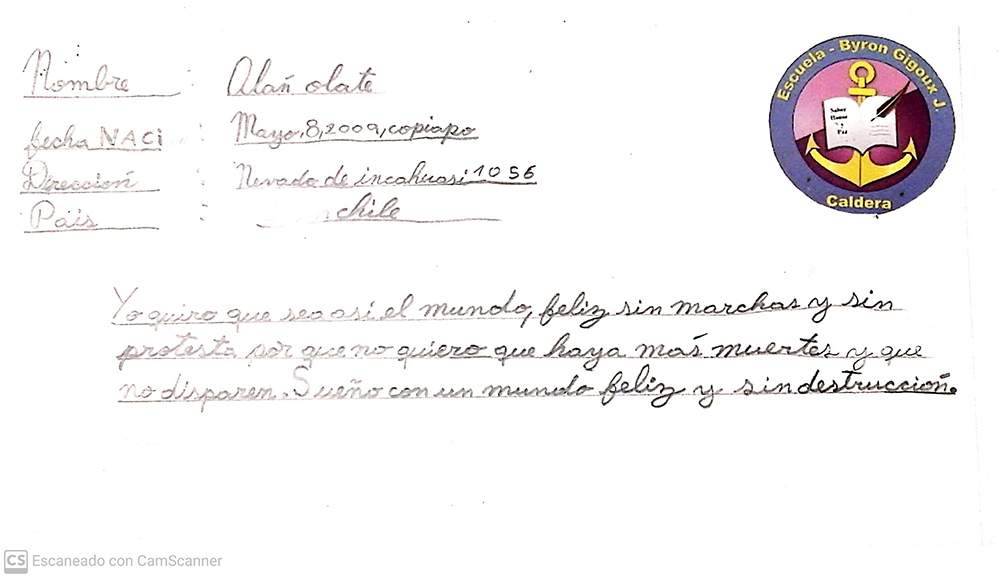 Nombre : Alañ olate
fecha NACi : Mayo, 8, 2009, copiapo
Direccioñ : Nevada de incahuasi 1056
Pais : chile
Escuela - Byron Gigoux J.
Saber
Honor
y
Paz
Caldera
Yo quiro que sea asi el mundo, feliz sin marchas y sin
protesta por que no quiero que haya mas muertes y que
no disparen. Sueño con un mundo feliz y sin destruccioñ.
CS Escaneado con CamScanner